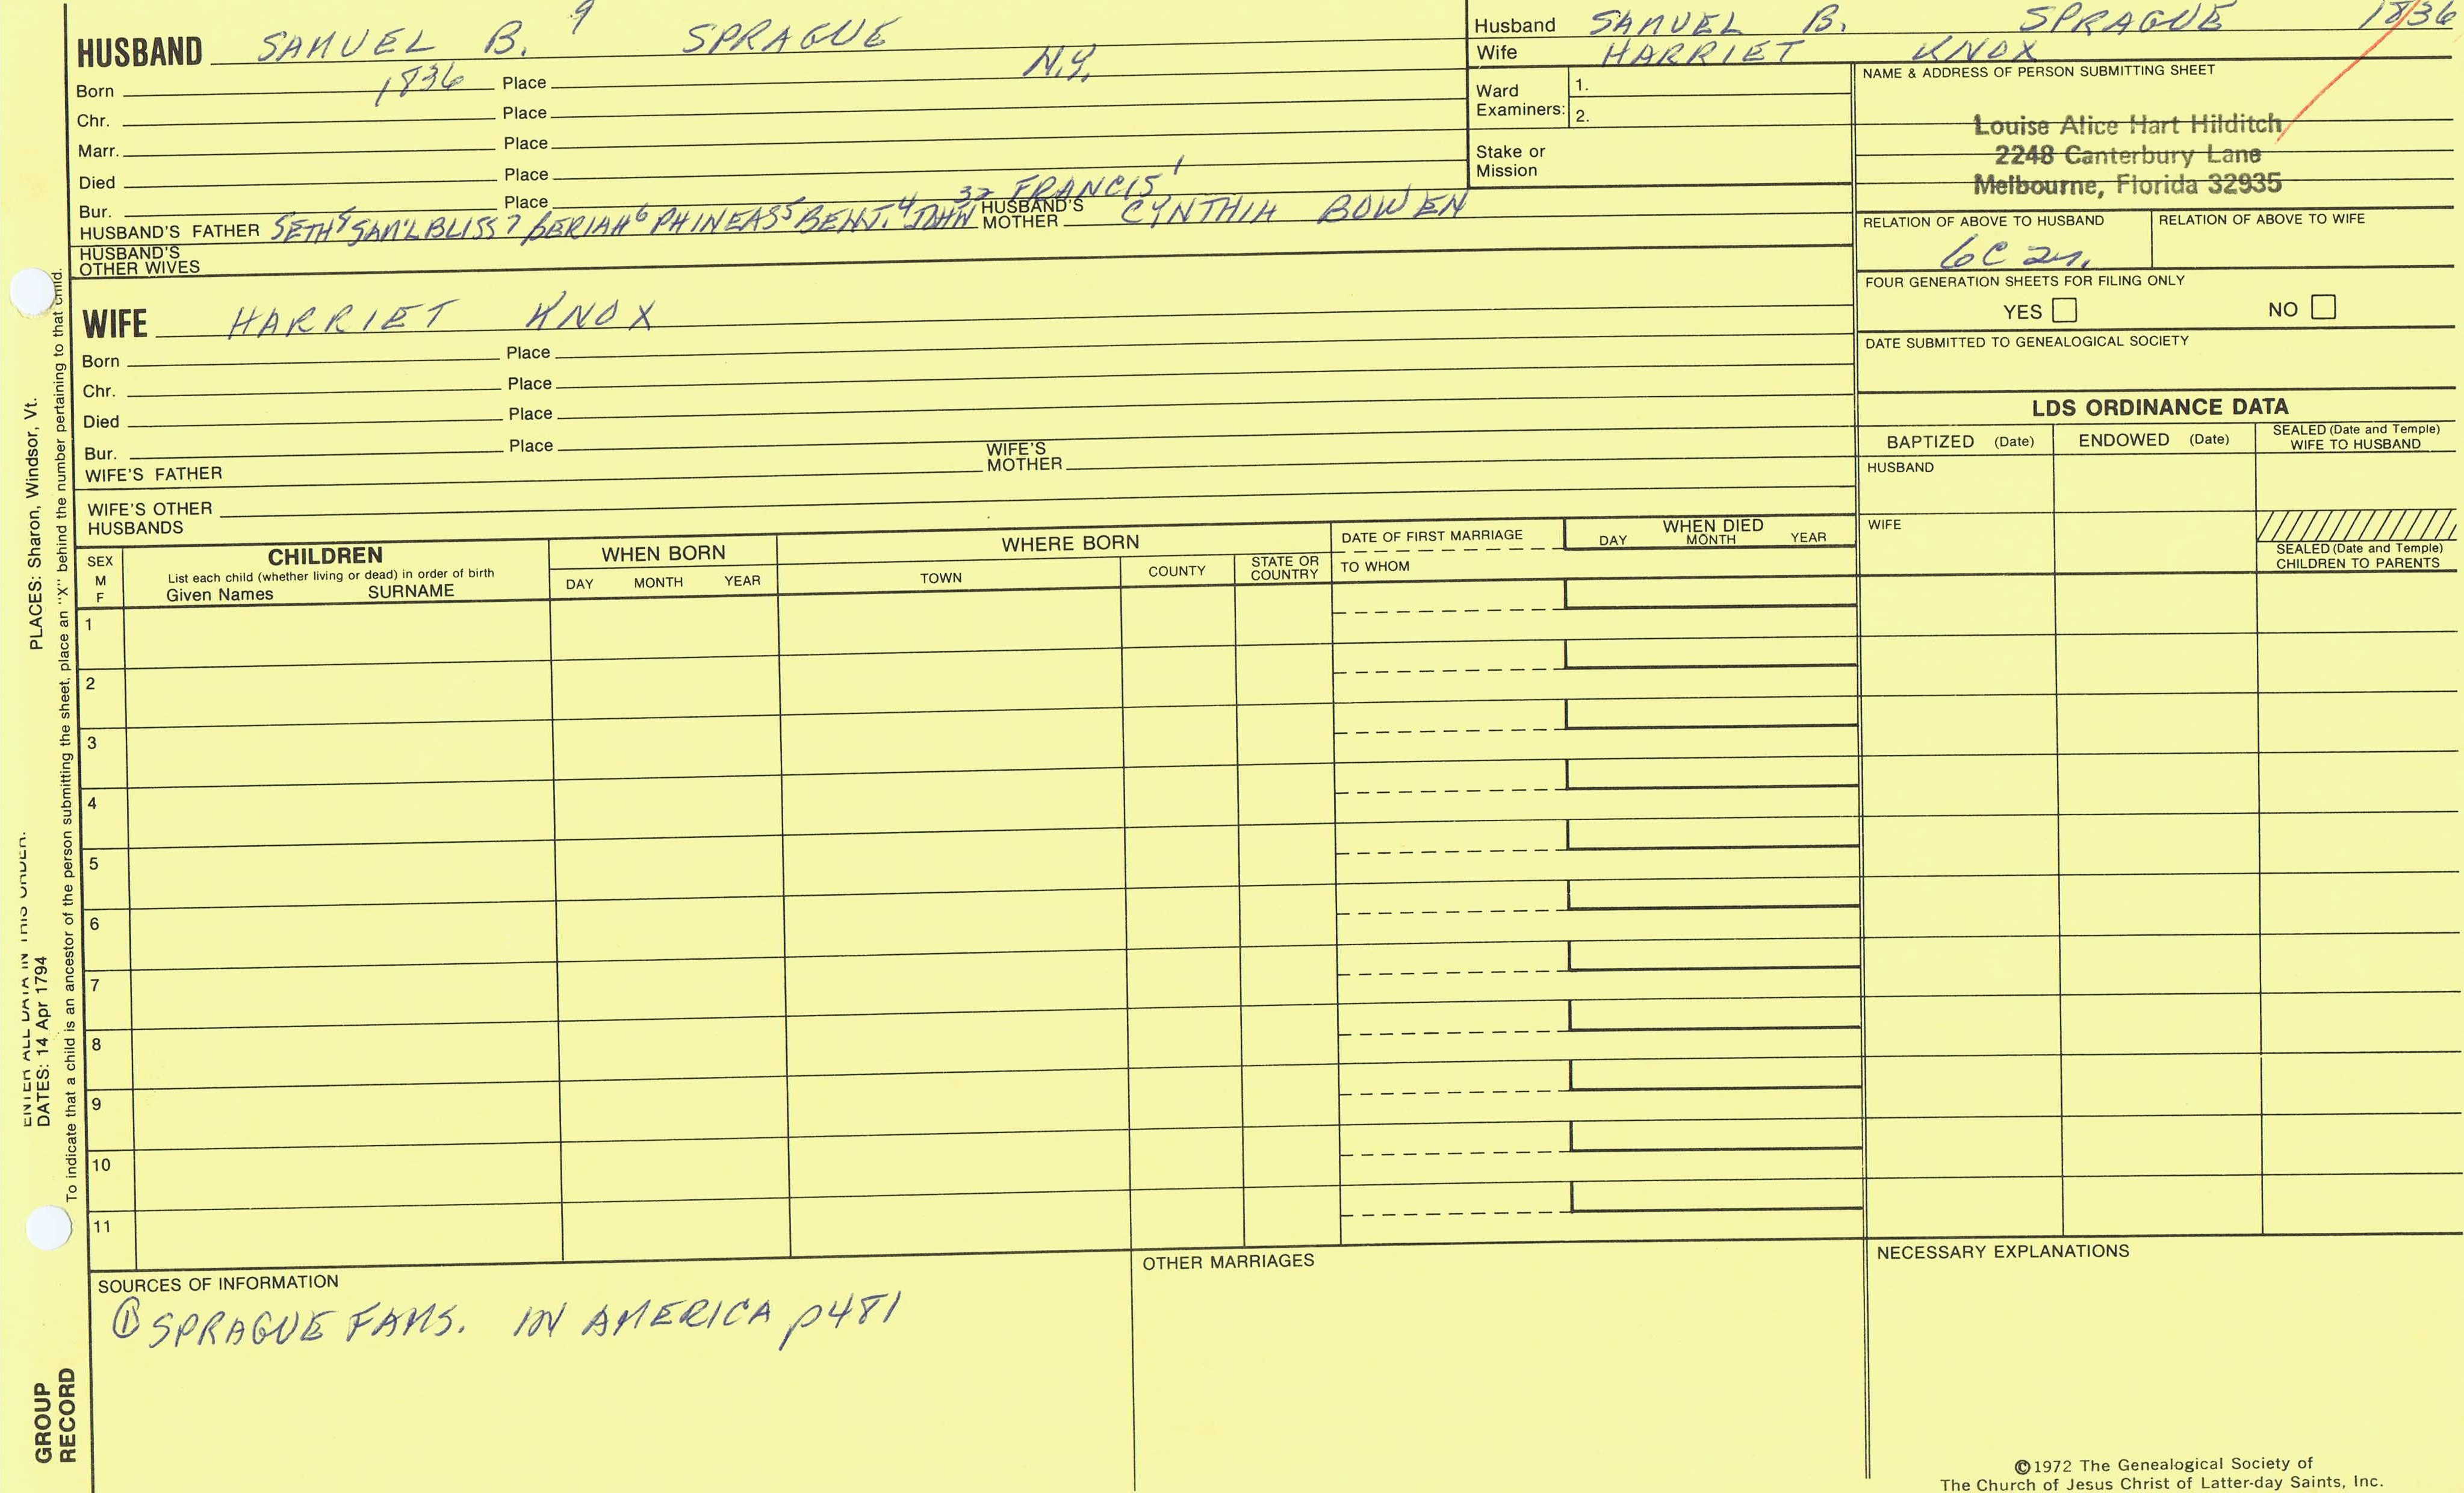 HUSBAND SAMUEL B. 9 SPRAGUE
Born 1836 Place N.Y.
Chr. Place
Marr. Place
Died Place
Bur. Place
HUSBAND'S FATHER SETH 8 SAM'L BLISS 7 BERIAH 6 PHINEAS 5 BENJ. 4 JOHN 32 FRANCIS 1 HUSBAND'S MOTHER CYNTHIA BOWEN
HUSBAND'S OTHER WIVES
Husband SAMUEL B. SPRAGUE 1836
Wife HARRIET KNOX
Ward Examiners: 1.
2.
Stake or Mission
NAME & ADDRESS OF PERSON SUBMITTING SHEET
Louise Alice Hart Hilditch
2248 Canterbury Lane
Melbourne, Florida 32935
RELATION OF ABOVE TO HUSBAND RELATION OF ABOVE TO WIFE
6C 2r.
FOUR GENERATION SHEETS FOR FILING ONLY
YES NO
DATE SUBMITTED TO GENEALOGICAL SOCIETY
WIFE HARRIET KNOX
Born Place
Chr. Place
Died Place
Bur. Place
WIFE'S FATHER WIFE'S MOTHER
WIFE'S OTHER HUSBANDS
LDS ORDINANCE DATA
BAPTIZED (Date) ENDOWED (Date) SEALED (Date and Temple) WIFE TO HUSBAND
HUSBAND
WIFE
SEALED (Date and Temple) CHILDREN TO PARENTS
SEX M F
CHILDREN
List each child (whether living or dead) in order of birth
Given Names SURNAME
WHEN BORN
DAY MONTH YEAR
WHERE BORN
TOWN COUNTY STATE OR COUNTRY
DATE OF FIRST MARRIAGE
TO WHOM
WHEN DIED
DAY MONTH YEAR
1
2
3
4
5
6
7
8
9
10
11
SOURCES OF INFORMATION
① SPRAGUE FAMS. IN AMERICA p481
OTHER MARRIAGES
NECESSARY EXPLANATIONS
©1972 The Genealogical Society of
The Church of Jesus Christ of Latter-day Saints, Inc.
GROUP RECORD
ENTER ALL DATA IN THIS ORDER.
DATES: 14 Apr 1794
PLACES: Sharon, Windsor, Vt.
To indicate that a child is an ancestor of the person submitting the sheet, place an "X" behind the number pertaining to that child.